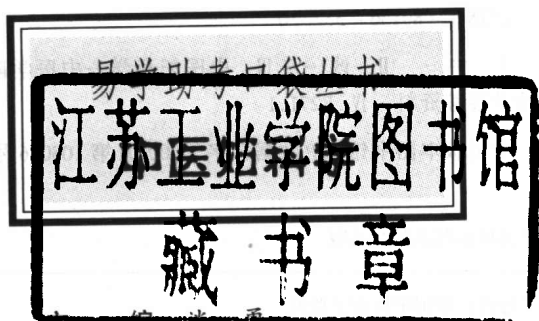 易学助考口袋丛书
中医妇科学
江苏工业学院图书馆
藏书章